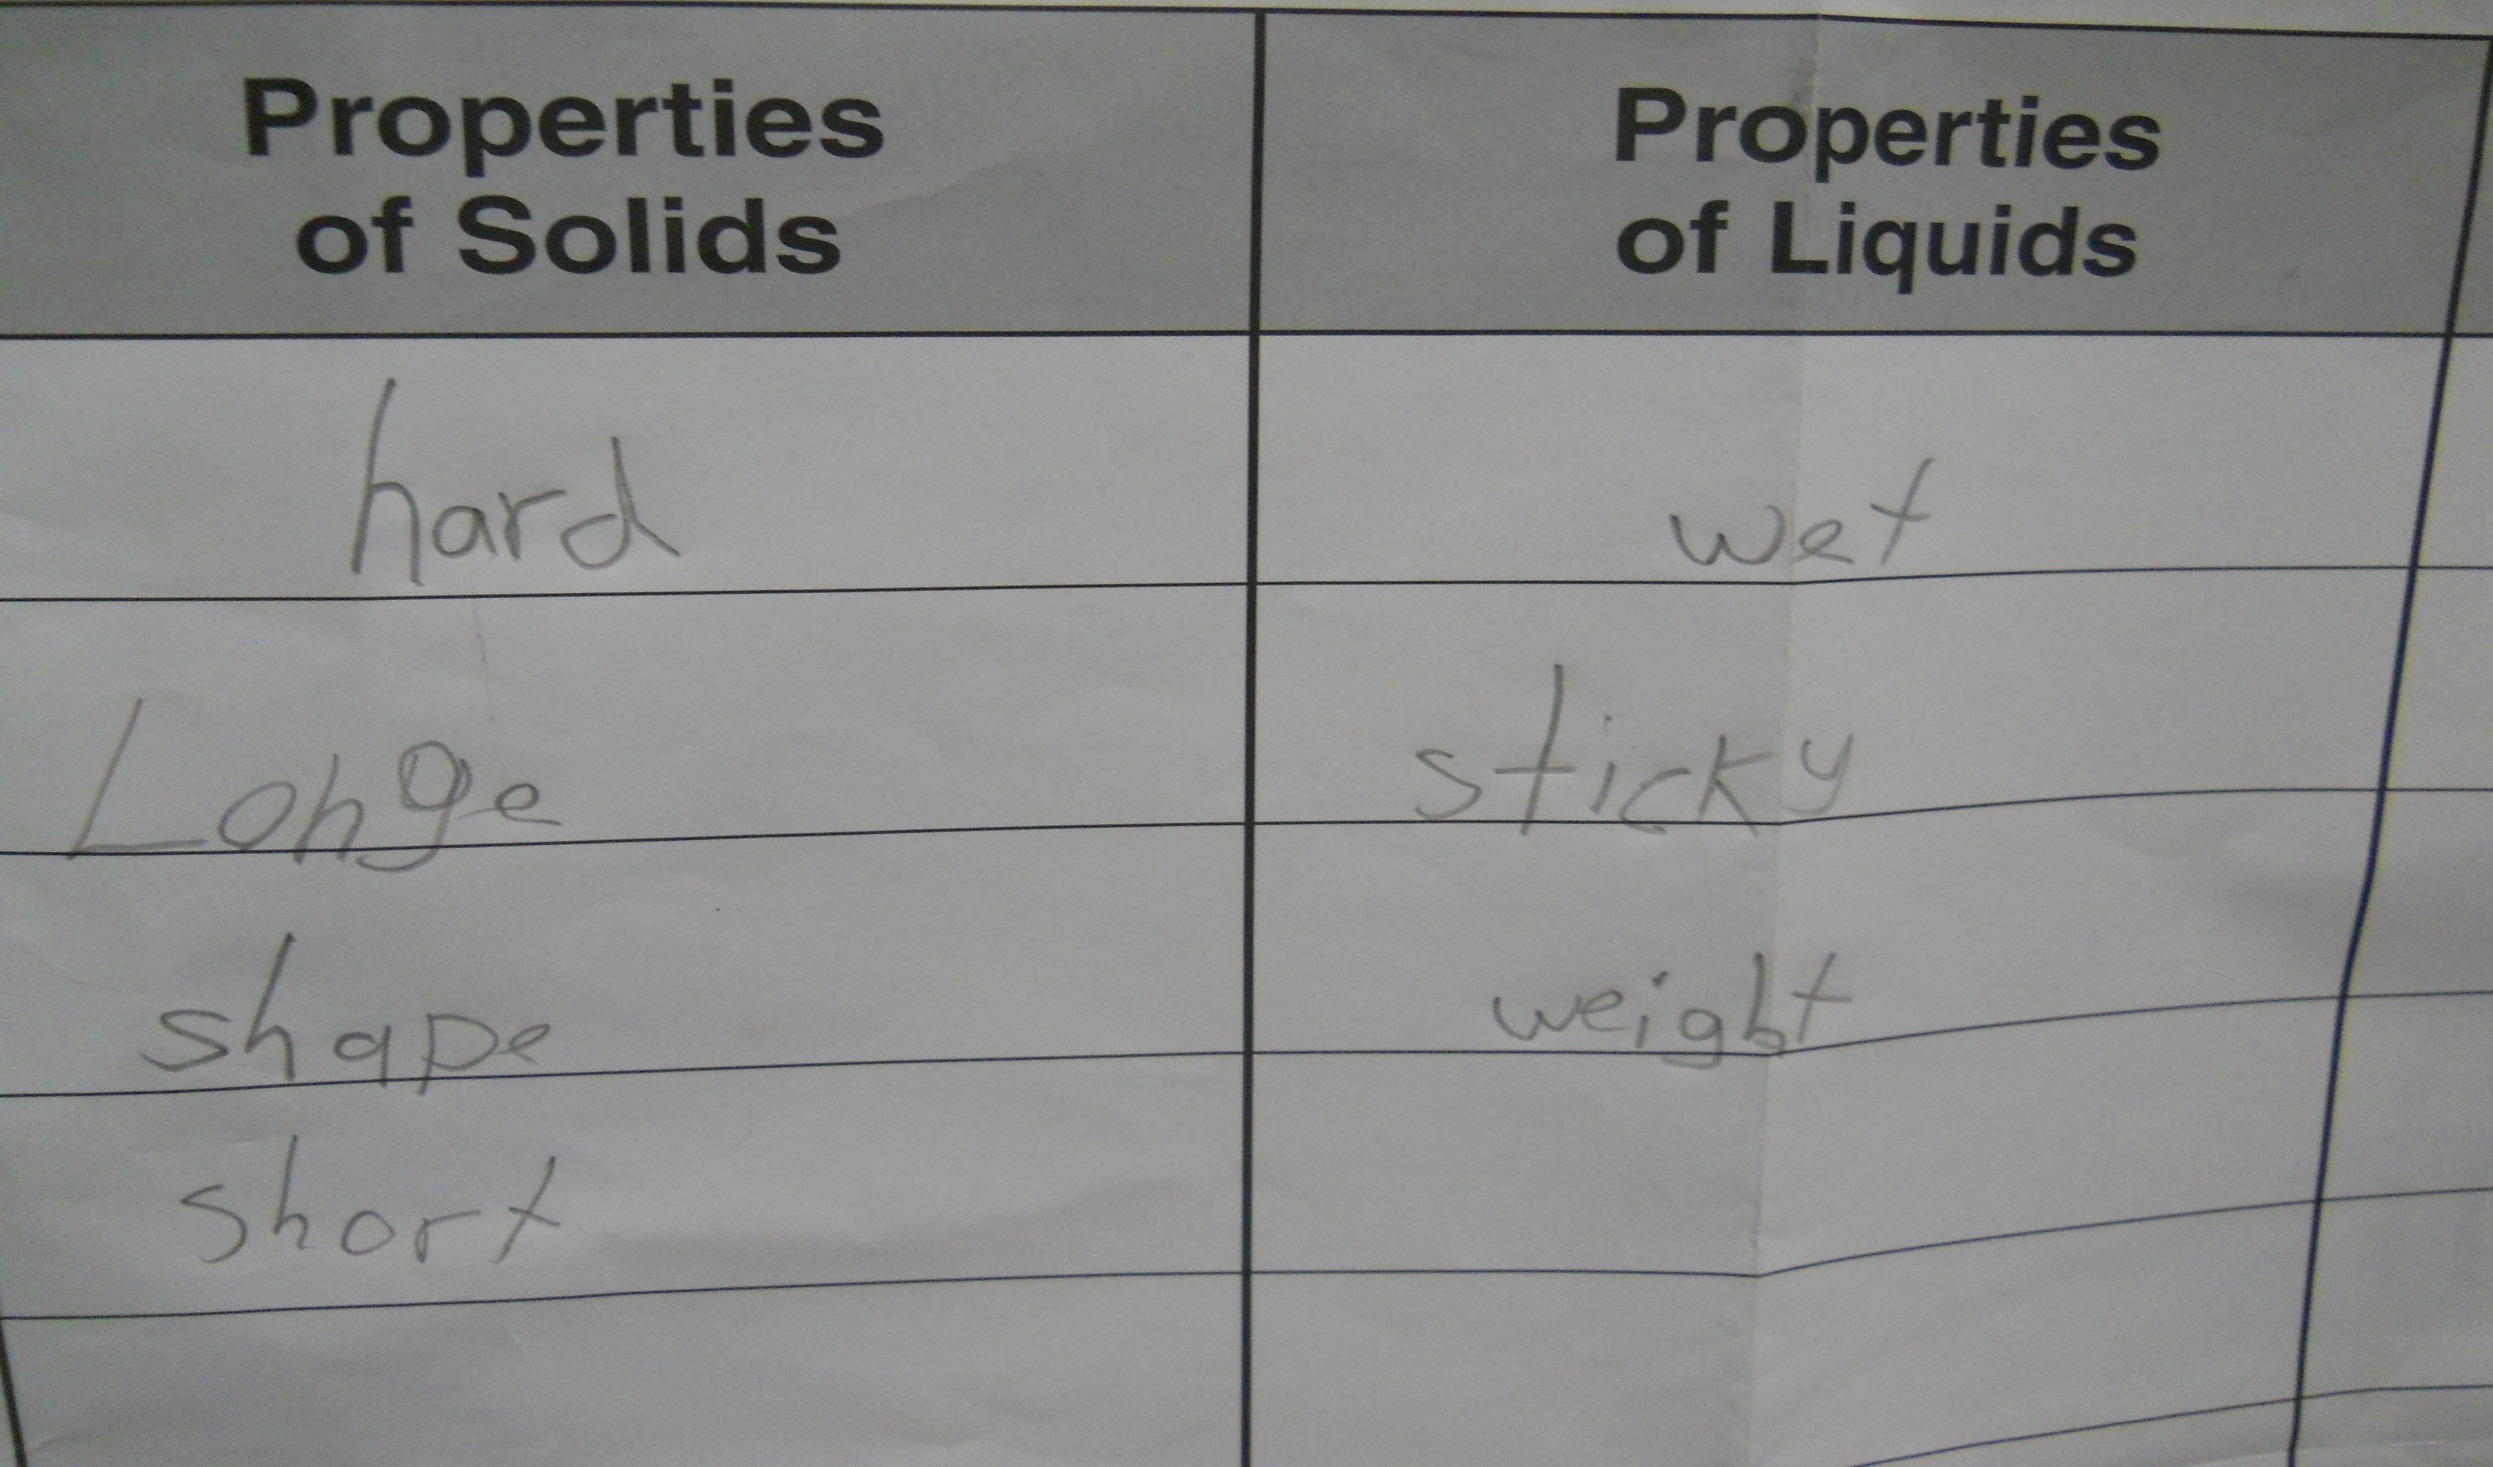 Properties of Solids
Properties of Liquids
hard
wet
Longe
sticky
shape
weight
short